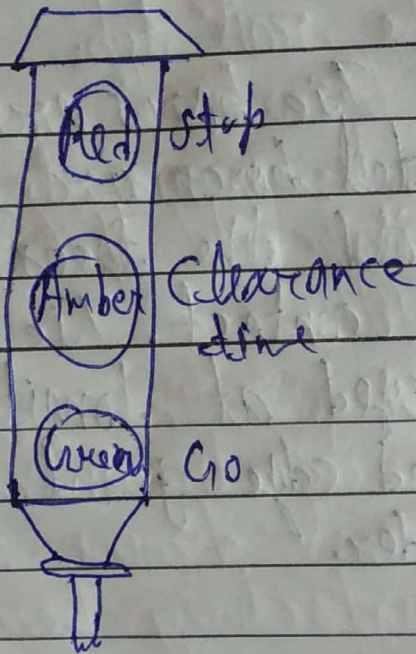 Red Stop
Amber Clearance
time
Green Go